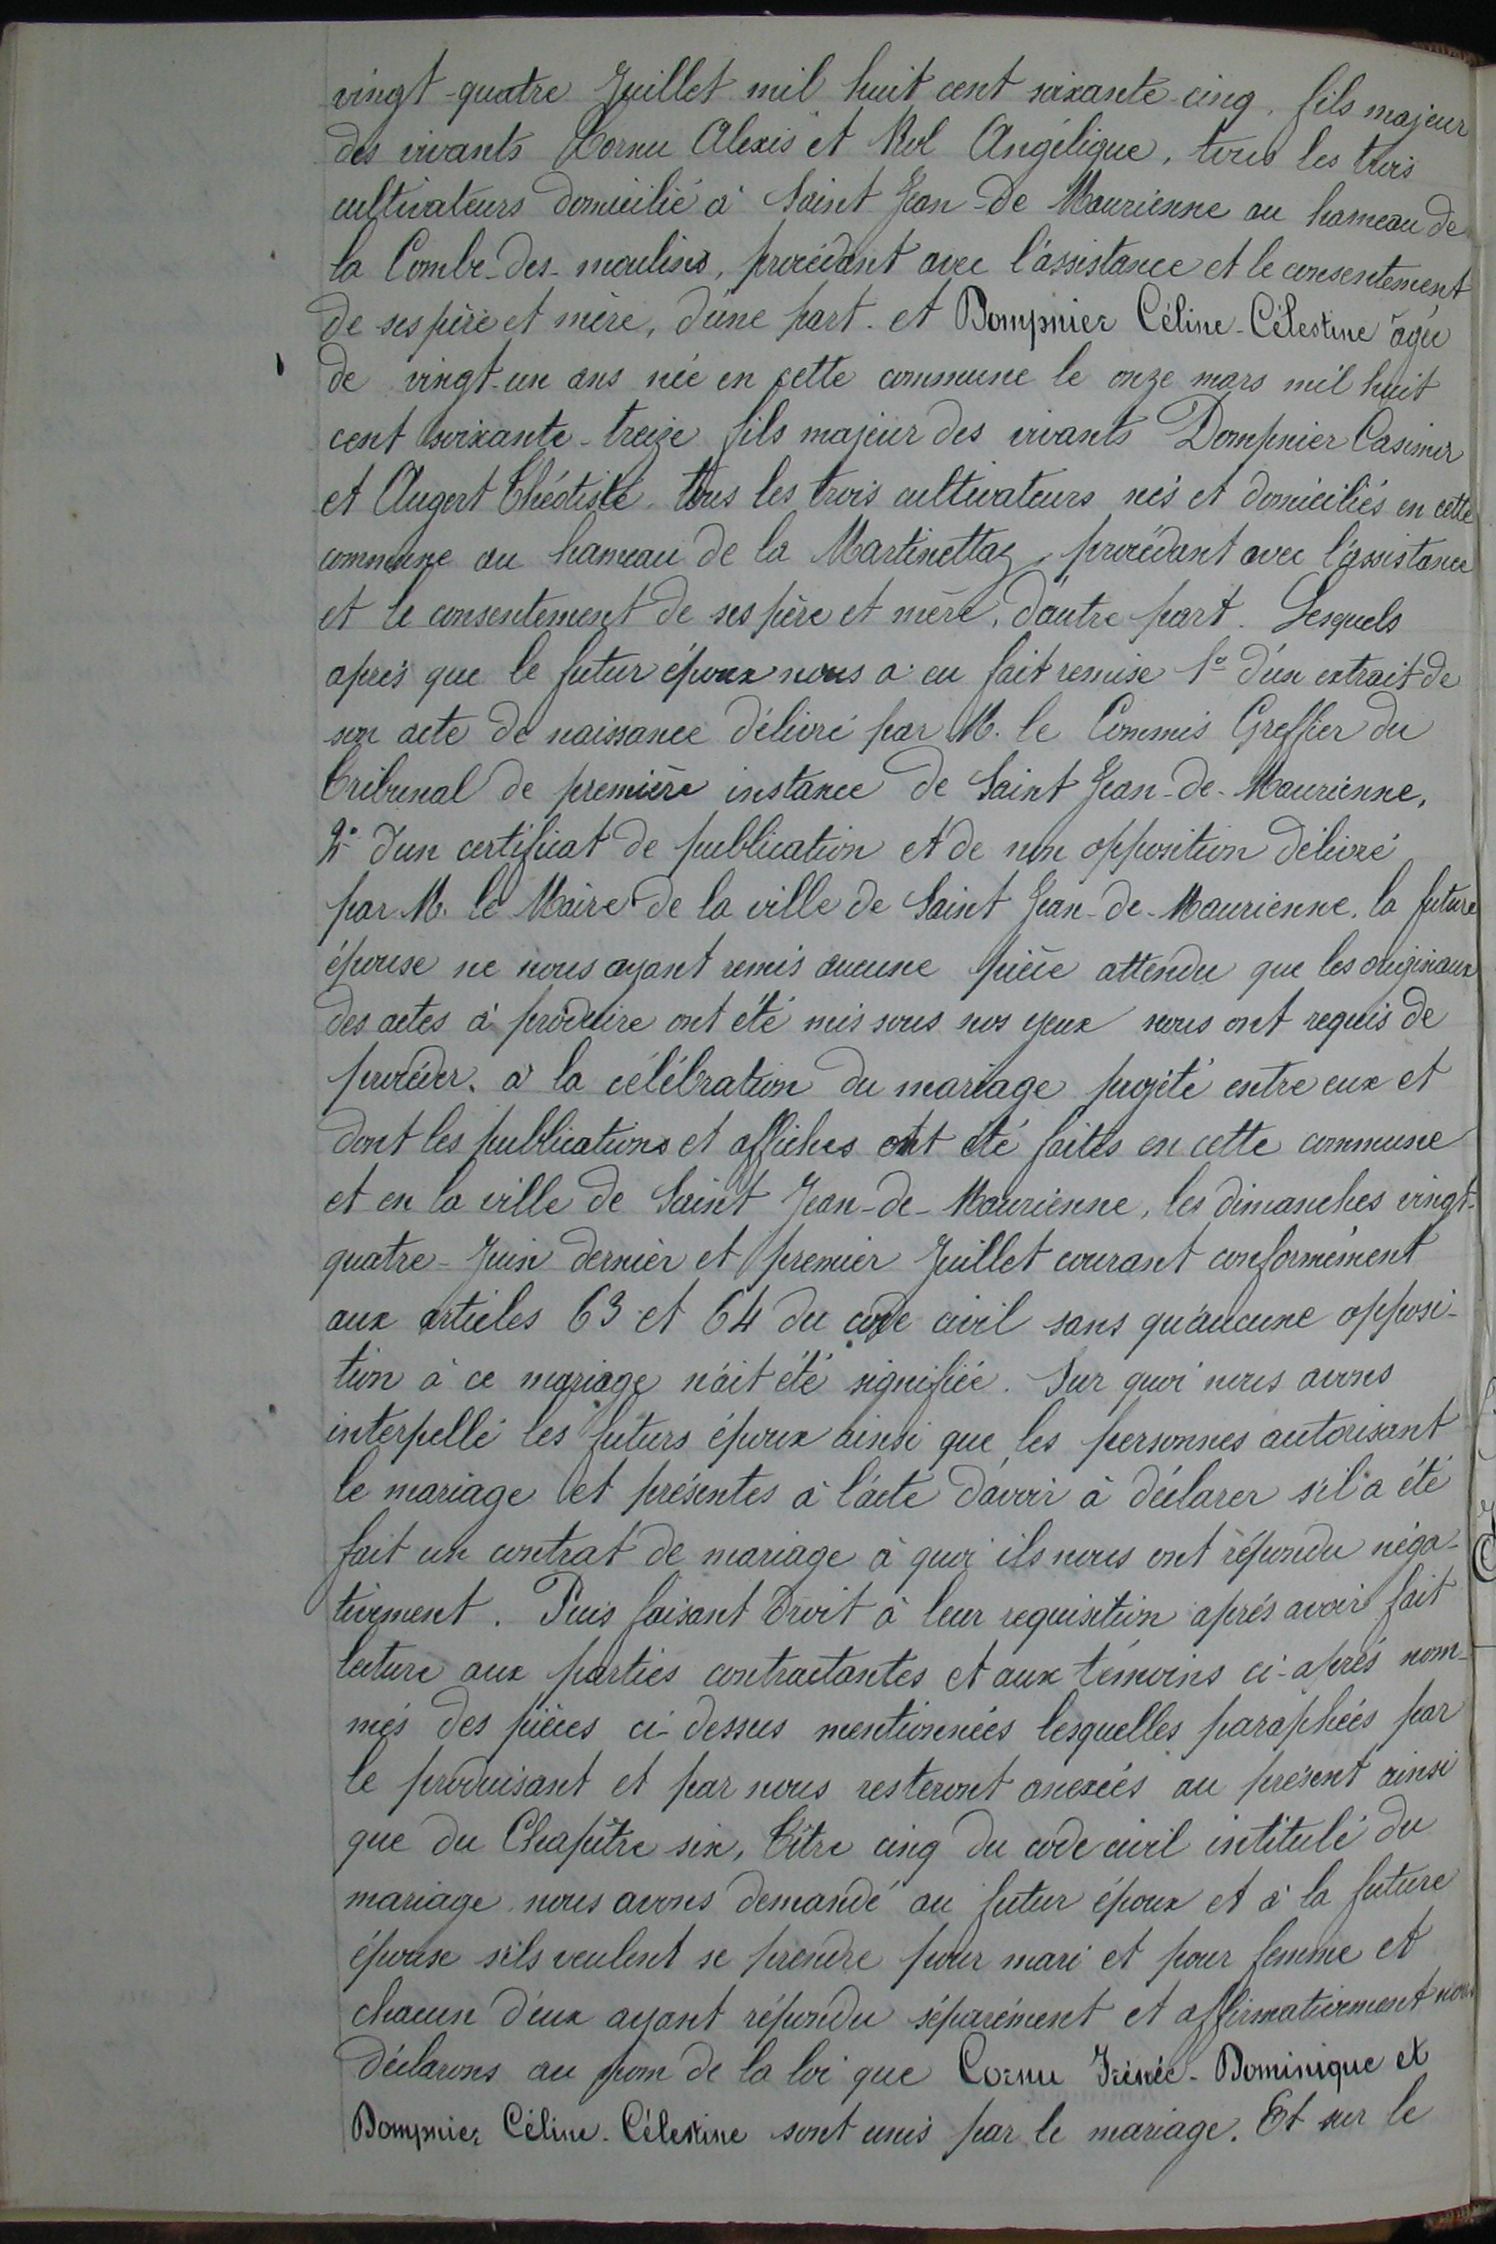 vingt-quatre Juillet mil huit cent soixante-cinq, fils majeur
des vivants Cornu Alexis et Rol Angélique, tous les trois
cultivateurs domicilié à Saint Jean-de Maurienne au hameau de
la Combe-des-moulins, procédant avec l'assistance et le consentement
de ses père et mère, d'une part. et Dompnier Céline-Célestine âgée
de vingt-un ans née en cette commune le onze mars mil huit
cent soixante-treize fils majeur des vivants Dompnier Casimir
et Augert Théotiste tous les trois cultivateurs nés et domiciliés en cette
commune au hameau de la Martinettaz, procédant avec l'assistance
et le consentement de ses père et mère, d'autre part. Lesquels
après que le futur époux nous a eu fait remise 1º d'un extrait de
son acte de naissance délivré par M. le Commis Greffier du
Tribunal de première instance de Saint Jean-de-Maurienne,
2º d'un certificat de publication et de non opposition délivré
par M. le Maire de la ville de Saint Jean-de-Maurienne, la future
épouse ne nous ayant remis aucune pièce attendu que les originaux
des actes à produire ont été mis sous nos yeux nous ont requis de
procéder, à la célébration du mariage projeté entre eux et
dont les publications et affiches ont été faites en cette commune
et en la ville de Saint Jean-de-Maurienne, les dimanches vingt-
quatre-Juin dernier et premier Juillet courant conformément
aux articles 63 et 64 du code civil sans qu'aucune opposi-
tion à ce mariage n'ait été signifiée. Sur quoi nous avons
interpellé les futurs époux ainsi que les personnes autorisant
le mariage et présentes à l'acte d'avoir à déclarer s'il a été
fait un contrat de mariage à quoi ils nous ont répondu néga-
tivement. Puis faisant droit à leur requisition après avoir fait
lecture aux parties contractantes et aux témoins ci-après nom-
més des pièces ci-dessus mentionnées lesquelles paraphées par
le produisant et par nous resteront anexées au présent ainsi
que du Chapitre six, Titre cinq du code civil intitulé du
mariage nous avons demandé au futur époux et à la future
épouse s'ils veulent se prendre pour mari et pour femme et
chacun d'eux ayant répondu séparément et affirmativement nous
déclarons au nom de la loi que Cornu Irénée-Dominique et
Dompnier Céline-Célestine sont unis par le mariage. Et sur le